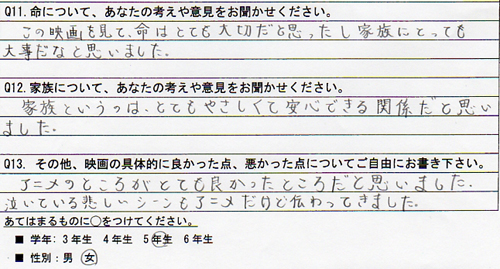 Q11. 命について、あなたの考えや意見をお聞かせください。
この映画を見て、命はとても大切だと思ったし家族にとっても
大事だなと思いました。
Q12. 家族について、あなたの考えや意見をお聞かせください。
家族というのは、とてもやさしくて安心できる関係だと思い
ました。
Q13. その他、映画の具体的に良かった点、悪かった点についてご自由にお書き下さい。
アニメのところがとても良かったところだと思いました。
泣いている悲しいシーンもアニメだけど伝わってきました。
あてはまるものに○をつけてください。
■ 学年: 3年生 4年生 5年生 6年生
■ 性別: 男 女